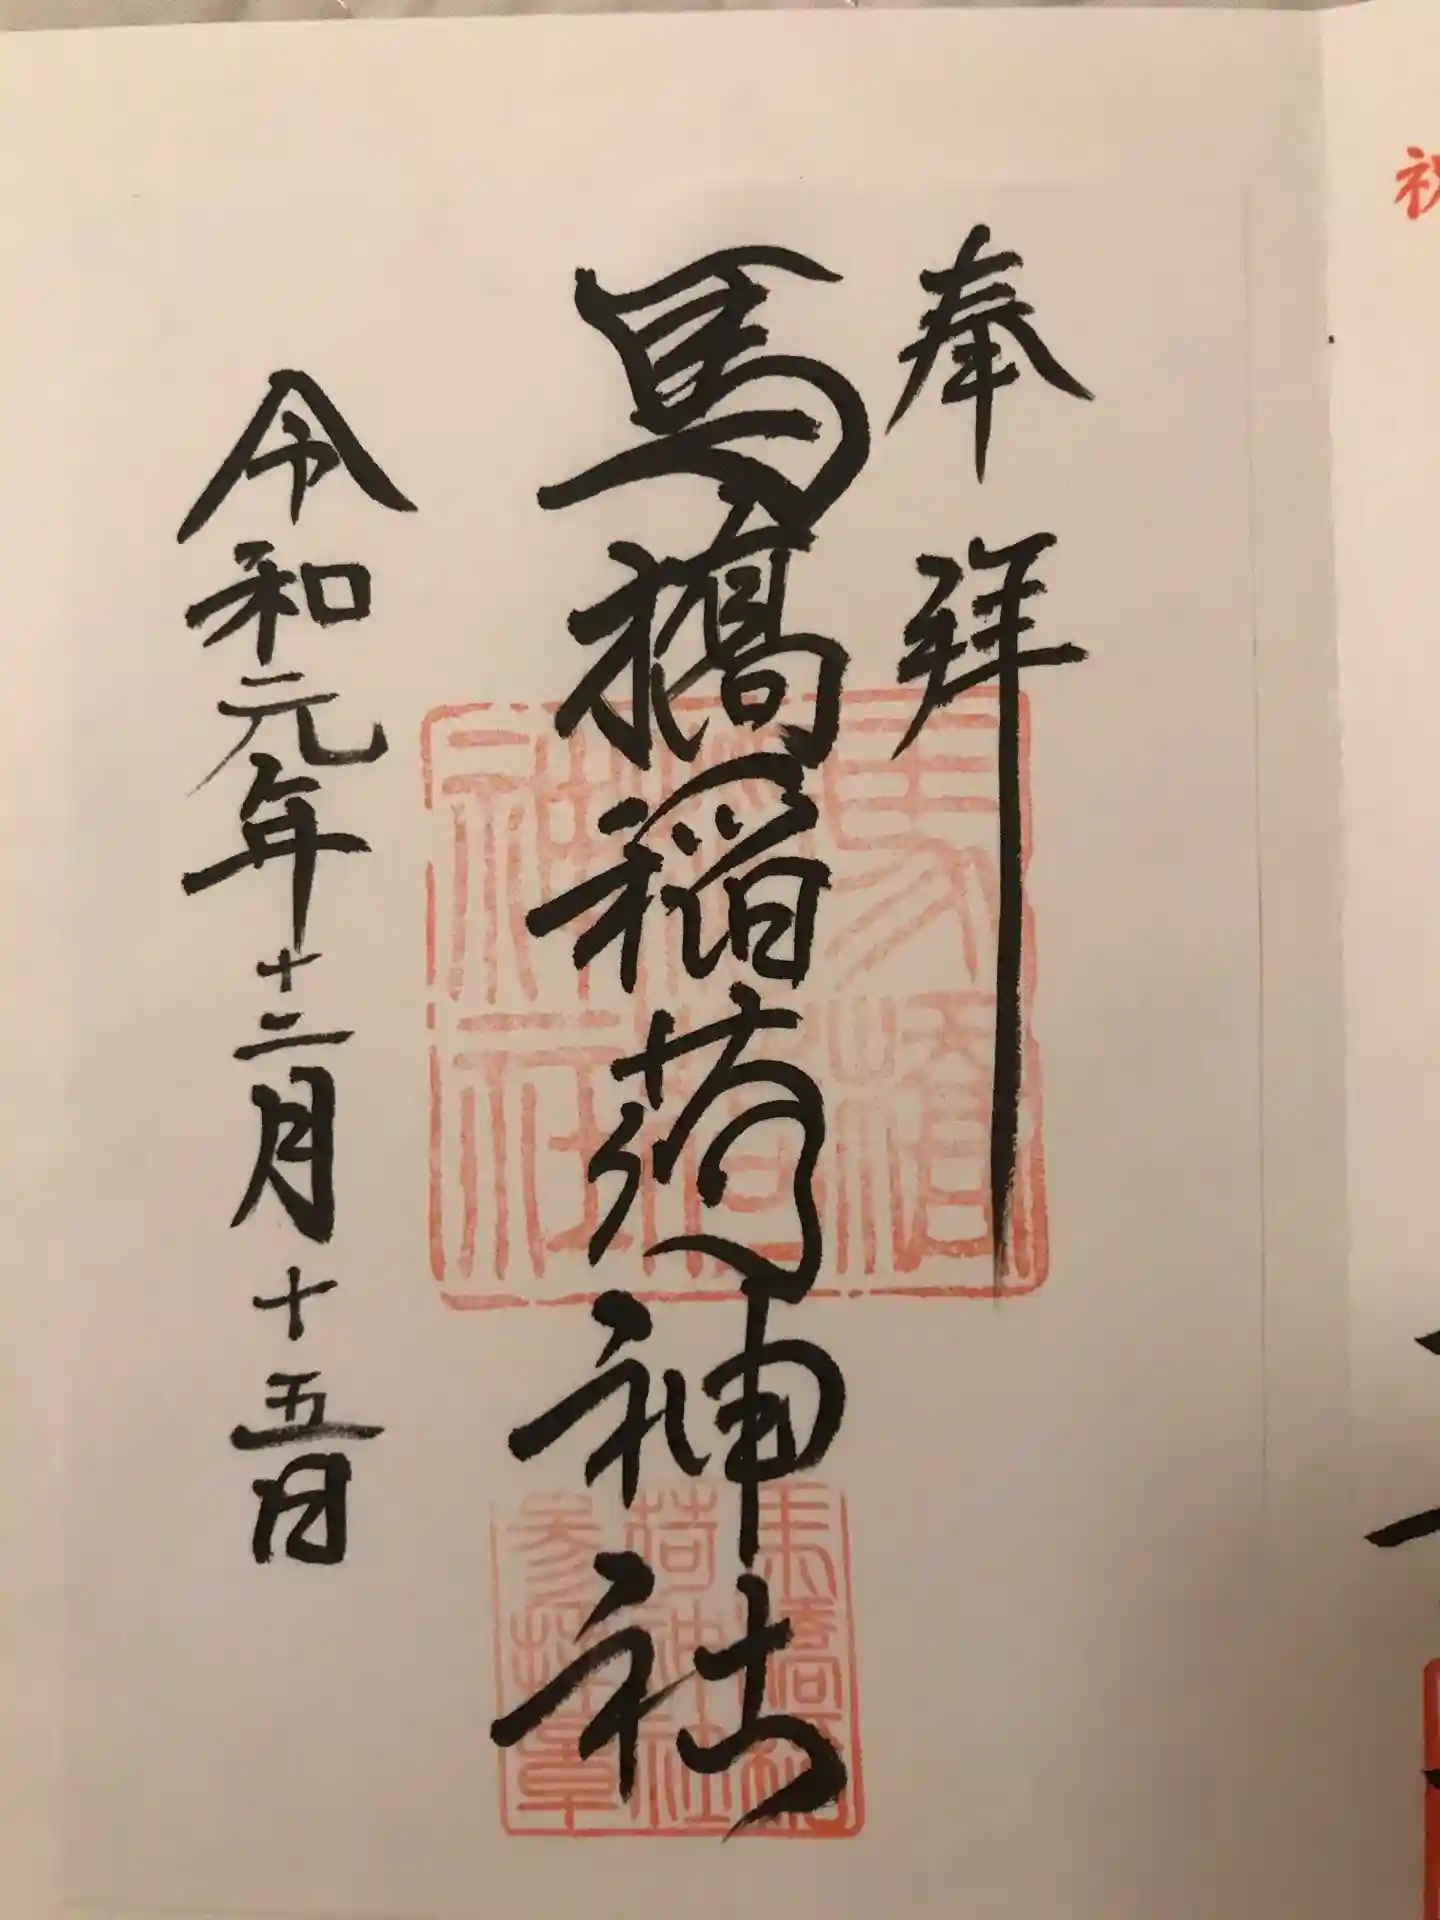 奉拝
馬橋稲荷神社
令和元年十二月十五日
馬橋
稲荷
神社
馬橋稲
荷神社
参拝章